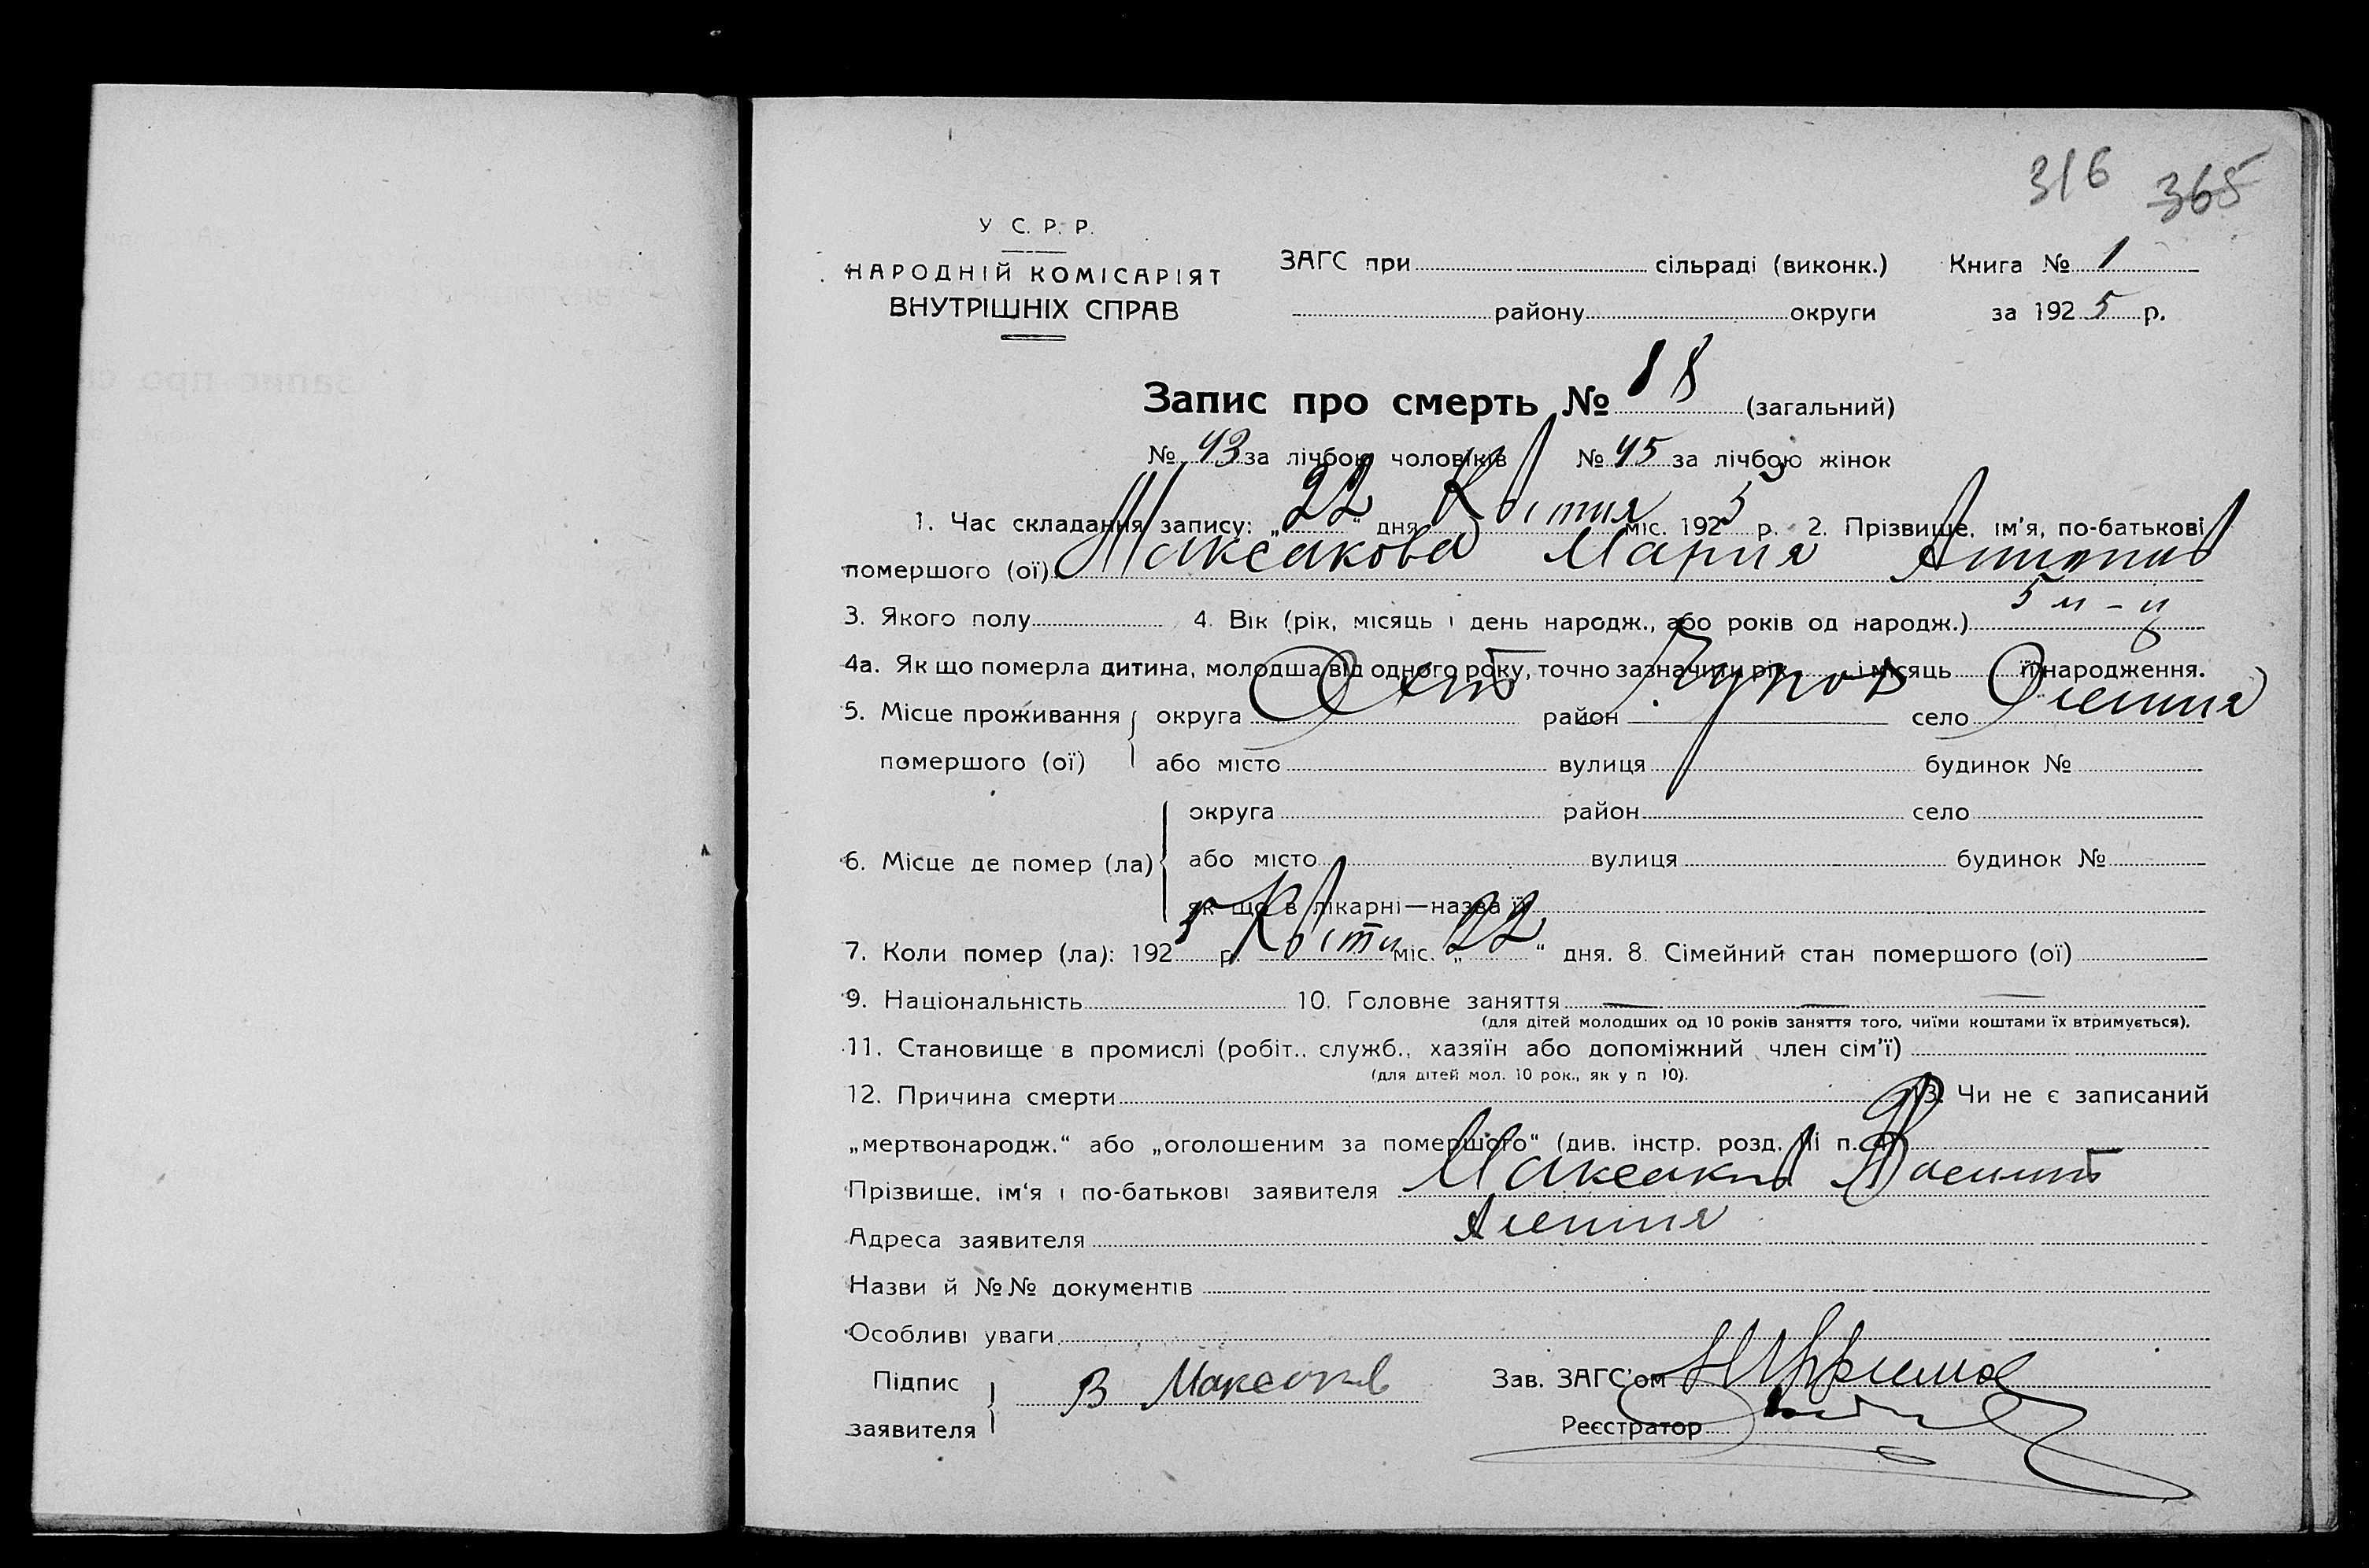 316 365
У С. Р. Р.
НАРОДНІЙ КОМІСАРІЯТ
ВНУТРІШНІХ СПРАВ
ЗАГС при сільраді (виконк.) Книга № 1
району округи за 1925 р.
Запис про смерть № 88 (загальний)
№ 43 за лічбою чоловіків № 45 за лічбою жінок
1. Час складання запису: „22“ дня Квітня міс. 1925 р. 2. Прізвище, ім'я, по-батькові
помершого (ої) Максакова Мария Антонов
3. Якого полу 4. Вік (рік, місяць і день народж., або років од народж.) 5 м-ц
4а. Як що померла дитина, молодша від одного року, точно зазначити рік і місяць її народження.
5. Місце проживання округа район село
помершого (ої) або місто вулиця будинок №
округа район село
6. Місце де помер (ла) або місто вулиця будинок №
як що в лікарні—назва її
7. Коли помер (ла): 1925 р. Квітн міс. „22“ дня. 8. Сімейний стан помершого (ої)
9. Національність 10. Головне заняття — — —
(для дітей молодших од 10 років заняття того, чиїми коштами їх втримується).
11. Становище в промислі (робіт., служб., хазяїн або допоміжний член сім'ї)
(для дітей мол. 10 рок., як у п 10).
12. Причина смерти 13. Чи не є записаний
„мертвонародж.“ або „оголошеним за помершого“ (див. інстр. розд. ІІі п.
Прізвище, ім'я і по-батькові заявителя Максаков
Адреса заявителя
Назви й №№ документів
Особливі уваги
Підпис
заявителя В Максаков
Зав. ЗАГС'ом
Реєстратор